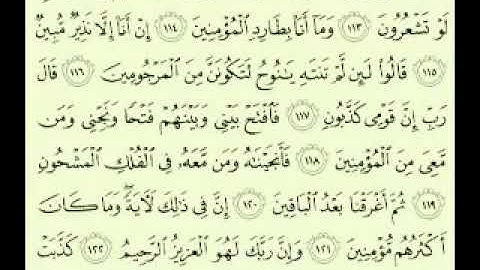 لَوْ تَشْعُرُونَ ١١٣ وَمَا أَنَا۠ بِطَارِدِ ٱلْمُؤْمِنِينَ ١١٤ إِنْ أَنَا۠ إِلَّا نَذِيرٌ مُّبِينٌ
١١٥ قَالُوا۟ لَئِن لَّمْ تَنتَهِ يَٰنُوحُ لَتَكُونَنَّ مِنَ ٱلْمَرْجُومِينَ ١١٦ قَالَ
رَبِّ إِنَّ قَوْمِى كَذَّبُونِ ١١٧ فَٱفْتَحْ بَيْنِى وَبَيْنَهُمْ فَتْحًا وَنَجِّنِى وَمَن
مَّعِىَ مِنَ ٱلْمُؤْمِنِينَ ١١٨ فَأَنجَيْنَٰهُ وَمَن مَّعَهُۥ فِى ٱلْفُلْكِ ٱلْمَشْحُونِ
١١٩ ثُمَّ أَغْرَقْنَا بَعْدُ ٱلْبَاقِينَ ١٢٠ إِنَّ فِى ذَٰلِكَ لَءَايَةً ۖ وَمَا كَانَ
أَكْثَرُهُم مُّؤْمِنِينَ ١٢١ وَإِنَّ رَبَّكَ لَهُوَ ٱلْعَزِيزُ ٱلرَّحِيمُ ١٢٢ كَذَّبَتْ